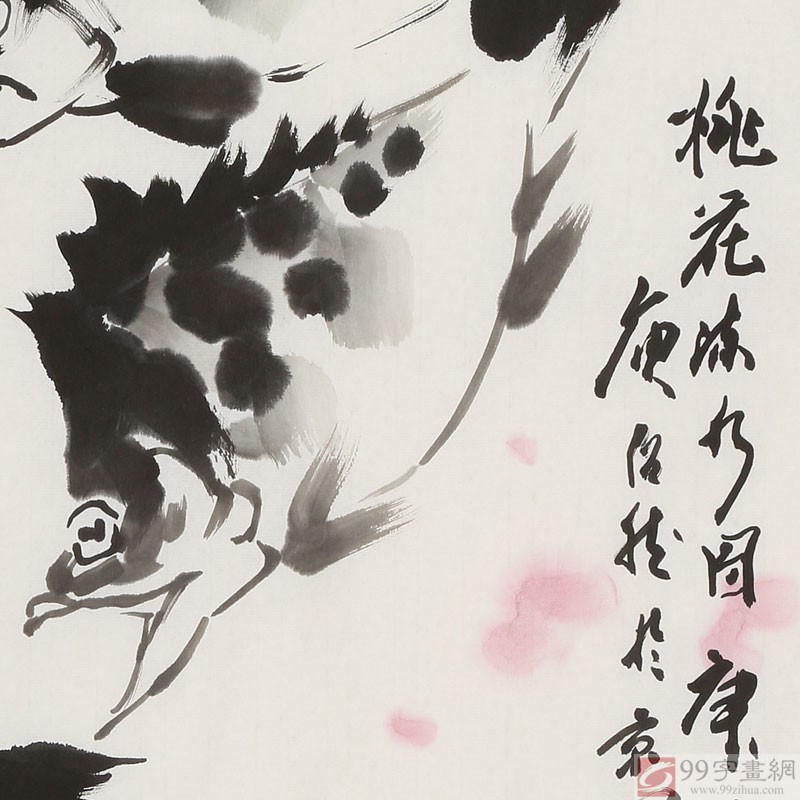 桃花流水图 庚
寅於京
99字畫網
www.99zihua.com